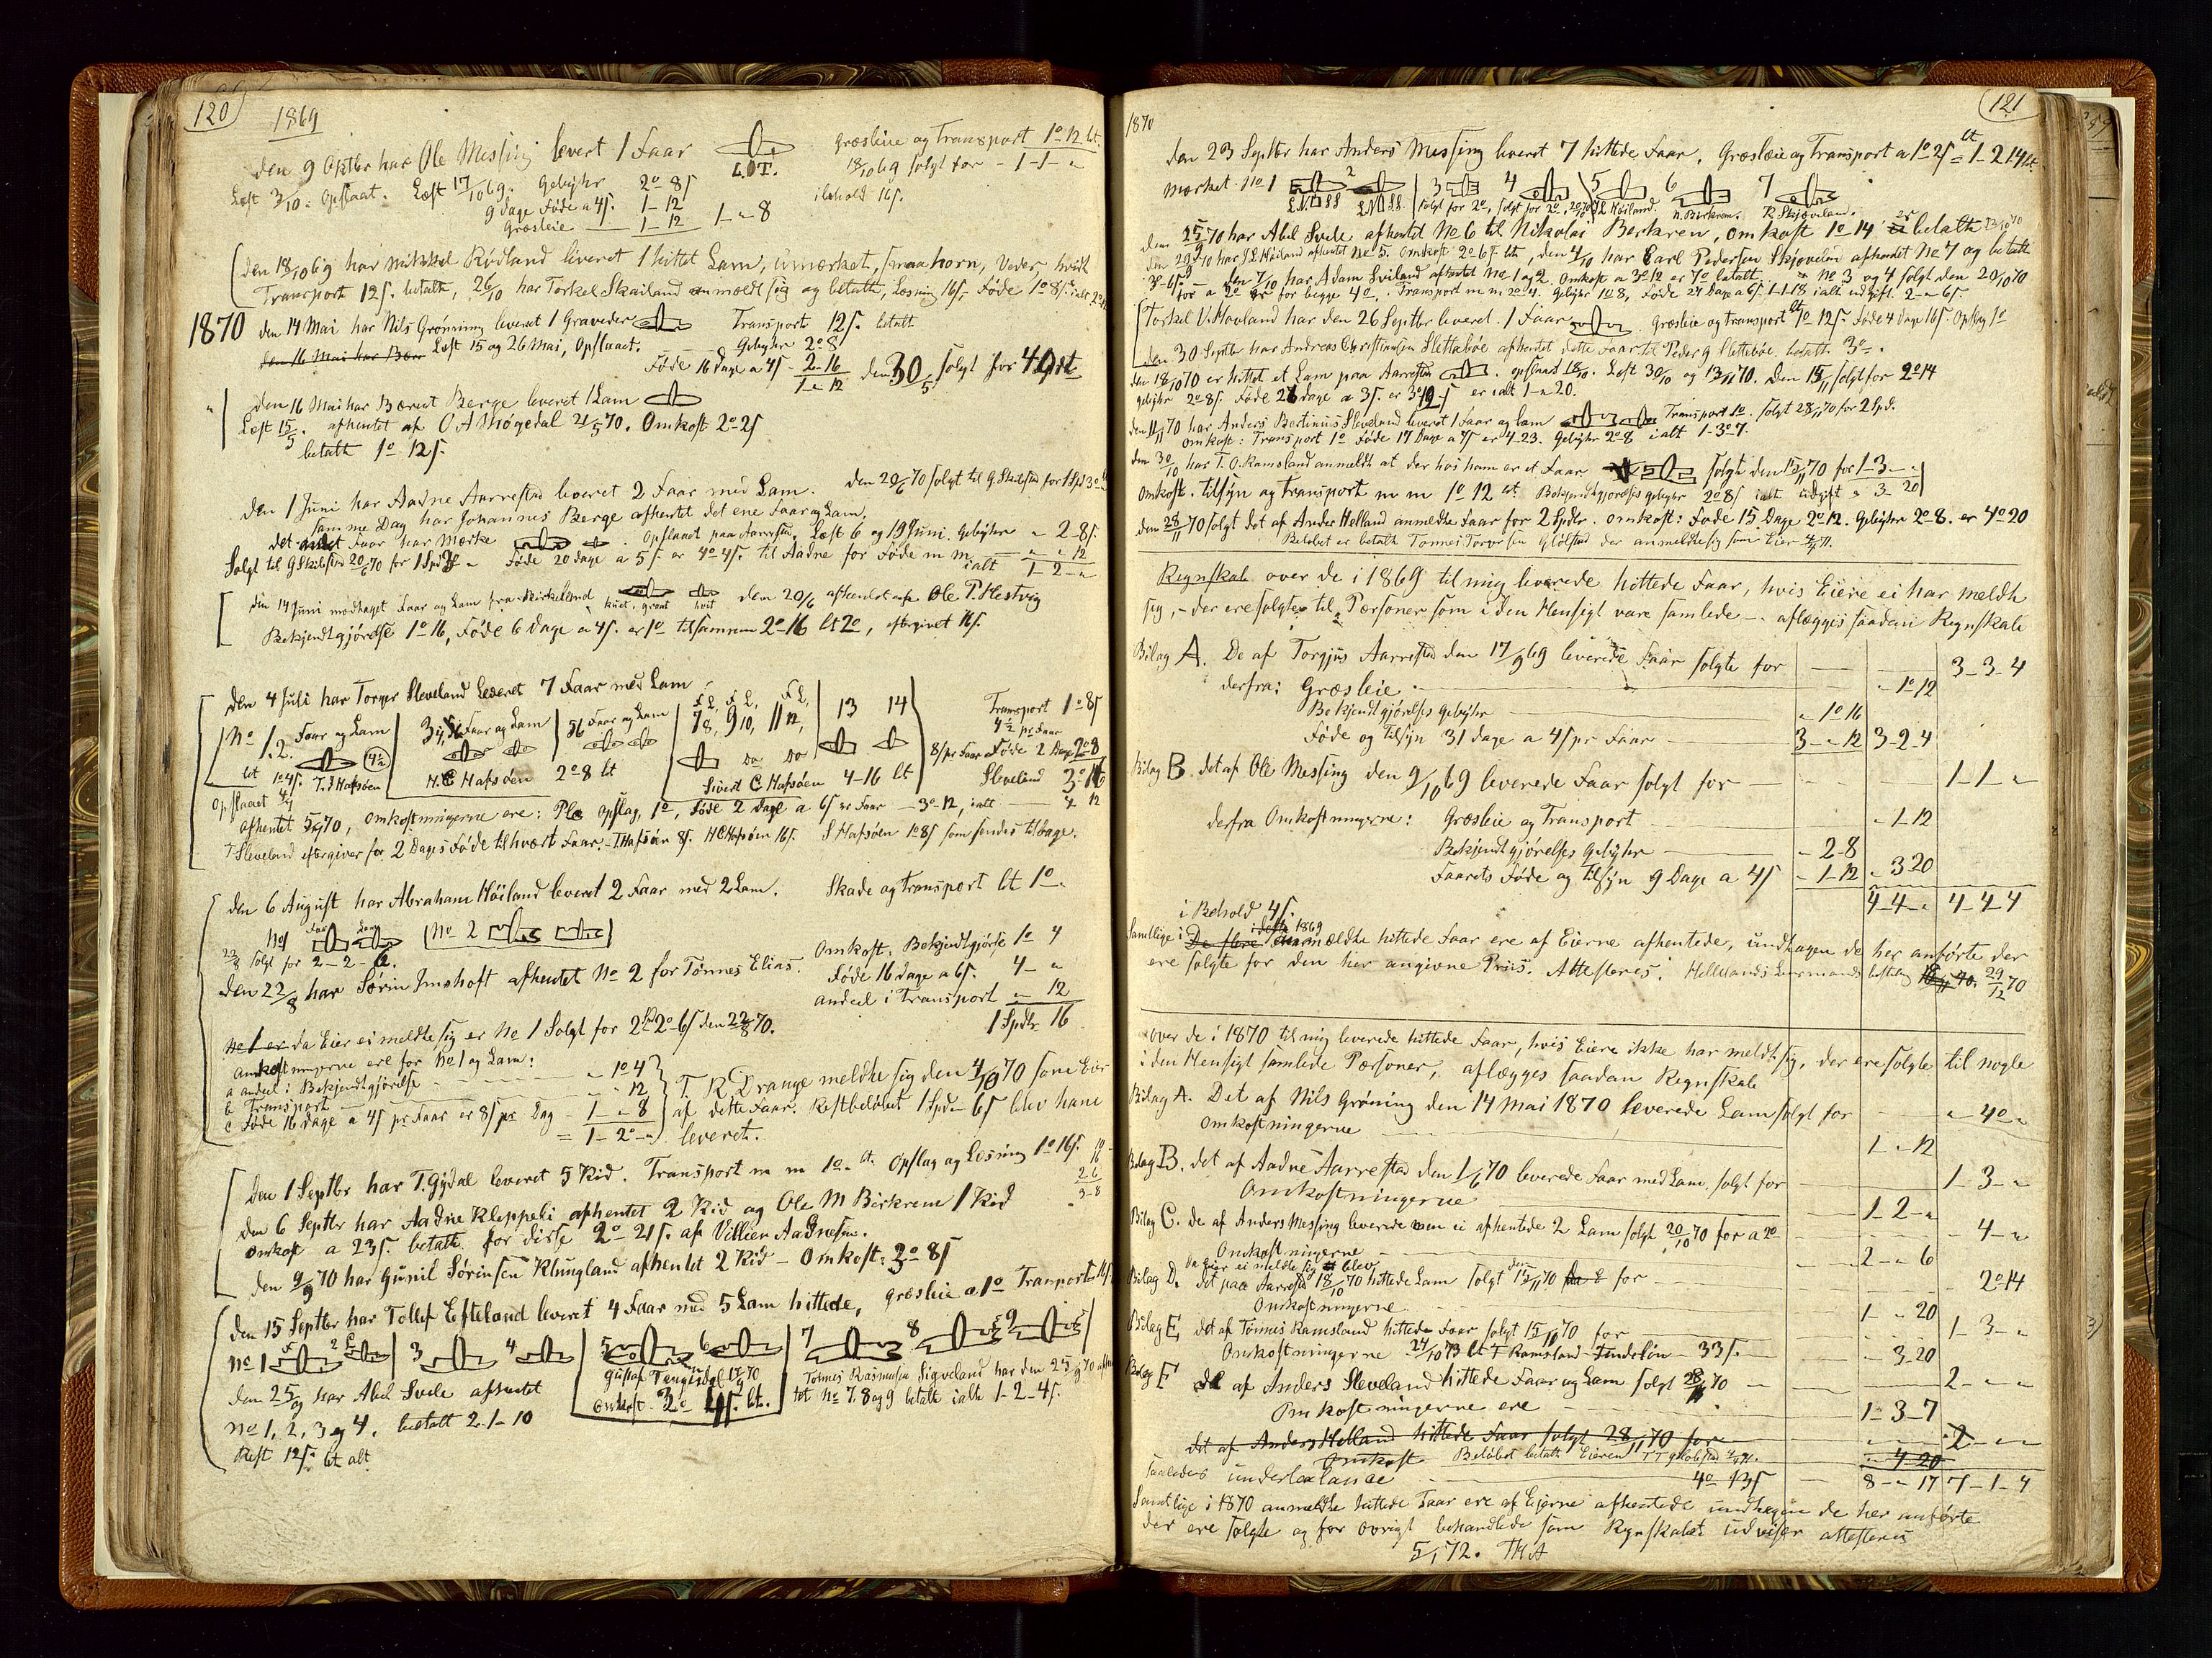 120
1869
Den 9 Oktbr har Ole Messing levert 1 Faar
L.O.T.
Græsleie og Transport 1º 12 bt.
Læst 3/10. Opslaat. Læst 17/10 69. Gebyhr 2º 8ſ
18/10 69 solgt for - 1-1- "
9 dage Føde a 4ſ. 1-12
ibehold 16ſ.
Græsleie 1-12 1-"-8
Den 18/10 69 har Mikkel Rødland leveret 1 hittet Lam, umærket, smaa horn, Veder, hvidt
Transport 12ſ. betalt, 26/10 har Torkel Skailand anmeldt sig og betalt, Løsning 16ſ. Føde 1º 8ſ.
1870 den 14 Mai har Nils Grønning leveret 1 Graveder Transport 12ſ. betalt
den 16 Mai har Bær Læst 15 og 26 Mai, Opslaaet. Gebyhr 2º 8
Føde 16 Dage a 4ſ - 2-16
1-"-12 den 30/5 solgt for 4 Ort
" den 16 Mai har Bærent Berge leveret 1 Lam
Læst 15/5. afhentet af O A Møgedal 21/5 70. Omkost 2º-2ſ
betalt 1º 12ſ.
Den 1 Juni har Aadne Aarrestad leveret 2 Faar med Lam. den 20/6 70 solgt til G. Skilstad for 1 Spd 3º
samme Dag har Johannes Berge afhentet det ene Faar og Lam.
det andet Faar har Mærke . Opslaaet paa Aarrestad, Læst 6 og 19 Juni. Gebyhr " 2-8ſ.
Solgt til G Skilstad 20/6 70 for 1 Spd 3º " Føde 20 dage a 5ſ er 4º 4ſ. til Aadne for Føde m m " " 12
ialt 1-2-"
Den 14 Juni modtaget Faar og Lam fra Birkeland den 20/6 afhentet af Ole P. Hestvig
Bekjendtgjørelse 1º 16, Føde 6 Dage a 4ſ. er 1º tilsammen 2º-16 bt 2º, eftergivet 16ſ.
Den 4 Juli har Torger Sleveland Leveret 7 Faar med Lam
Nº 1.2. Faar og Lam
3,4 Faar og Lam
5 6 Faar og Lam
F L, F L, F L,
7 8, 9 10, 11 12,
13 14
Transport 1º 8ſ
4½ pr Faar
bt 1º 4ſ. T. I Hafsøen
H. C Hafsøen 2º 8 bt
Do Do
Sivert C Hafsøen 4-16 bt
8ſ pr Faar Føde 2 Dage 2º 8
Sleveland 3º 16
Opslaaet 4/7
afhentet 5/7 70, omkostningerne ere: Opslag, 1º, Føde 2 Dage a 6ſ pr Faar - 3º-12, ialt 4 12
T Sleveland eftergiver for 2 Dages Føde til hvært Faar. - T. Hafsøen 8ſ. H C Hafsøen 16ſ. S Hafsøen 1º 8ſ som sendes tilbage.
Den 6 August har Abraham Høiland leveret 2 Faar med 2 Lam. Skade og Transport bt 1º "
Nº 1 Faar Lam Nº 2
22/8 solgt for 2-2-6.
Omkost. Bekjendtgjørse 1º 4
Den 22/8 har Sørin Imshoft afhentet Nº 2 for Tønnes Elias. Føde 16 dage a 6ſ. 4- "
andeel i Transport " 12
1 Spdlr 16
Nº 1 er da Eier ei meldte sig er Nº 1 Solgt for 2 Spd 2º 6ſ den 22/8 70.
Omkostningerne ere for No 1 og Lam:
a andel i Bekjendtgjørelse " 1º 4
b Transport " 12
c Føde 16 dage a 4ſ pr Faar er 8ſ pr Dag - 1-"-8
= 1-2º-"
T. R Drange meldte sig den 4/10 70 som Eier
af dette Faar. Restbeløbet 1 Spd " 6ſ blev ham
leveret.
Den 1 Septbr har T. Gydal leveret 5 Kid. Transport m m 1º " bt. Opslag og Læsning 1º 16ſ.
Den 6 Septbr har Aadne Kleppeli afhentet 2 Kid og Ole M Birkrem 1 Kid
Omkost a 23ſ. betalt for disse 2º 21ſ. af Villien Aadnesen.
Den 9/9 70 har Gunil Sørinsen Klungland afhentet 2 Kid - Omkost: 2º 8ſ
Den 15 Septbr har Tollef Efteland leveret 4 Faar med 5 Lam hittede, græsleie a 1º Transport 16ſ.
Nº 1 2 3 4 5 6 7 8 9
Den 25/9 har Abel Svele afhentet
Nº 1, 2, 3 og 4. betalt 2-1-10
Rest 12ſ. bt alt
Gustaf Tengesdal 17/9 70
Omkost 3º 4ſ. bt.
Tønnes Rasmusen Sigveland har den 25/9 70 afhen
tet Nº 7. 8 og 9 betalt ialt 1-2-4ſ.
121
1870
Den 23 Septbr har Anders Messing leveret 7 hittede Faar. Græsleie og Transport a 1º 2ſ = 1-2 14 bt.
Mærket. Nº 1 2 3 4 5 6 7
solgt for 2º, solgt for 2º, Høiland. N. Birkrem. R Skjæveland.
Den 25/9 70 har Abel Svele afhentet Nº 6 til Nikolai Berkren, omkost 1º 14 er betalt
Den 29/9 70 har J L Høiland afhentet Nº 5. Omkost 2º 6ſ. bt, den 4/10 har Carl Pedersen Skjeveland afhentet Nº 7 og betalt
3º-6ſ. - den 7/10 har Adam Sviland afhentet Nº 1 og 2. Omkost a 3º 12 er 7º betalt. Nº 3 og 4 solgt den 20/10 70
for a 2º er for begge 4º. Transport m m 2º 4. Gebyhr 1º 8, Føde 27 Dage a 6ſ. 1-1-18 ialt udgift 2-"-6ſ.
Torkel V. Hovland har den 26 Septbr leveret 1 Faar . Græsleie og Transport 1º 12ſ. Føde 4 dage 16ſ. Opslag 1º
Den 30 Septbr har Andreas Christiansen Slettebøe afhentet dette Faar til Peder G Slettebøe, betalt 3º ".
Den 18/10 70 er hittet et Lam paa Aarrestad . opslaaet 18/10. Læst 30/10 og 13/11 70. Den 15/11 solgt for 2º 14
gebyhr 2º 8ſ. Føde 28 dage a 3ſ. er 3º 12 ſ er ialt 1-"20.
Den 11/11 70 har Anders Bertinius Sleveland leveret 1 Faar og Lam Transport 1º. solgt 28/11 70 for 2 Spd.
omkost: Transport 1º Føde 17 Dage a 7ſ er 4-23. Gebyhr 2º 8 ialt 1-3º 7.
Den 30/10 har T. O. Ramsland anmeldt at der hos ham er et Faar solgt den 15/11 70 for 1-3-"
Omkost. tilsyn og Transport m m 1º 12 bt. Bekjendtgjørelses gebyhr 2º 8ſ ialt udgift " 3-20
Den 28/11 70 solgt det af Ander Helland anmeldte Faar for 2 Spdlr. omkost: Føde 15 Dage 2º 12. Gebyhr 2º 8. er 4º 20
Beløbet er betalt Tønnes Torgersen Gjølstad der anmeldte sig som Eier 4/1 71.
Regnskab over de i 1869 til mig leverede hittede Faar, hvis Eiere ei har meldt
sig, - der ere solgte til Personer som i den Hensigt vare samlede - aflægges saadan Regnskab
Bilag A. De af Torgjus Aarrestad den 17/9 69 leverede Faar solgte for 3-3-4
derfra: Græsleie " 1º 12
Bekjendtgjørelses gebyhr " 1º 16
Føde og tilsyn 31 dage a 4ſ pr Faar 3-"-12 3-2-4
Bilag B. det af Ole Messing den 9/10 69 leverede Faar solgt for 1-1-"
derfra Omkostningerne: Græsleie og Transport " 1-12
Bekjendtgjørelses Gebyhr " 2-8
Faarets Føde og tilsyn 9 Dage a 4ſ " 1-12 " 3 20
i Behold 4ſ. 4-4-" 4-4-4
Samtlige i De flere dette 1869 anmældte hittede Faar ere af Eierne afhentede, undtagen de her anførte der
ere solgte for den her angivne Priis. Attesteres. Hellelands Lensmands bestilling 29/12 70
over de i 1870 til mig leverede hittede Faar, hvis Eiere ikke har meldt sig, der ere solgte til nogle
i den Hensigt samlede Personer, aflægges saadan Regnskab
Bilag A. Det af Nils Grøning den 14 Mai 1870 leverede Lam solgt for " 4º "
Omkostningerne 1-"-12
Bilag B. det af Aadne Aarrestad den 1/6 70 leverede Faar med Lam, solgt for 1-3-"
Omkostningerne 1-2-"
Bilag C. de af Anders Messing leverede men ei afhentede 2 Lam solgt 20/10 70 for a 2º 4-"
Omkostningerne 2-"-6
da Eier ei meldte sig blev
Bilag D. det paa Aarrestad 18/10 70 hittede Lam solgt den 15/11 70 for 2º 14
Omkostningerne 1-"20
Bilag E, det af Tønnes Ramsland hittede Faar solgt 15/11 70 for 1-3-"
Omkostningerne 24/10 73 bt T Ramsland Findeløn - 33ſ. " 3-20
Bilag F det af Anders Sleveland hittede Faar og Lam solgt 28/11 70 2-"-"
Omkostningerne ere 1-3-7
det af Anders Helland hittede Faar solgt 28/11 70 for 2-"-"
Omkost Beløbet betalt Eieren " 4-20
saaledes underbalance 4º 13ſ 8-"-17 7-1-4
Samtlige i 1870 anmeldte hittede Faar ere af Eierne afhentede undtagen de her anførte
der ere solgte og for øvrigt behandlede som Regnskabet udviser attesteres
5/1 72. TRA